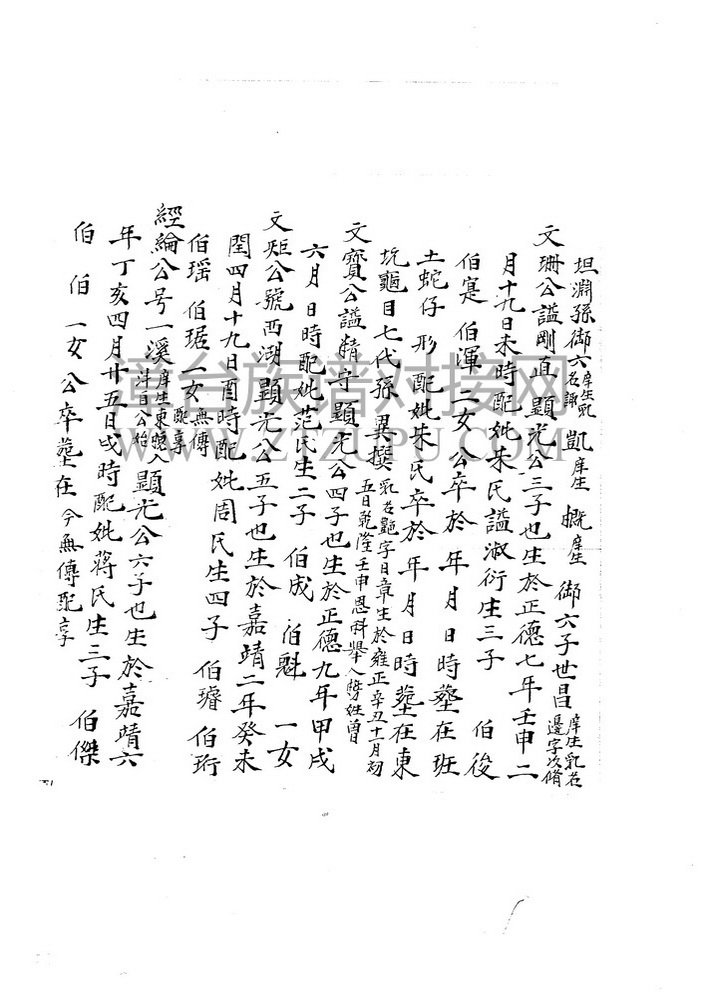 坦淵孫御六庠生乳名謙 凱庠生 概庠生 御六子世昌庠生乳名邊字次脩
文珊公諡剛直顯光公三子也生於正德七年壬申二
月十九日未時配妣朱氏諡淑衍生三子 伯後
伯寔 伯渾 二女 公卒於 年 月 日 時塟在班
土蛇仔 形 配妣朱氏卒於 年 月 日 時塟在東
坑龜目七代孫 巽撰乳名艷字日章生於雍正辛丑十一月初五日乾隆壬申恩科舉人 姓曾
文寶公諡精守顯光公四子也生於正德九年甲戌
六月 日 時配妣范氏生二子 伯成 伯魁 一女
文矩公號西湖顯光公五子也生於嘉靖二年癸未
閏四月十九日酉時配妣周氏生四子 伯璿 伯珩
伯瑶 伯琚 二女無傳配享
經綸公号一溪庠生東 入泮自公始 顯光公六子也生於嘉靖六
年丁亥四月廿五日戌時配妣蔣氏生三子 伯傑
伯 伯 一女 公卒塟在 今無傳配享
漳台族谱对接网
WWW.ZTZUPU.COM